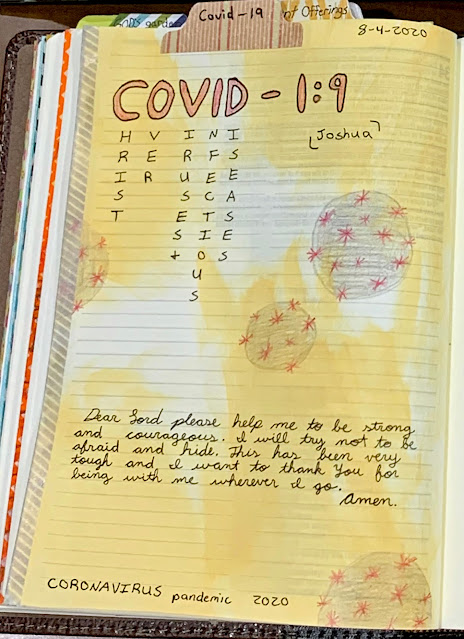 Covid-19 nt Offerings
8-4-2020
COVID - 1:9
[Joshua]
H V I N I
R E R F S
I R U E E
S S C A
T E T S
S I E
+ O S
U
S
Dear Lord please help me to be strong
and courageous. I will try not to be
afraid and hide. This has been very
tough and I want to thank You for
being with me wherever I go.
Amen.
CORONAVIRUS pandemic 2020